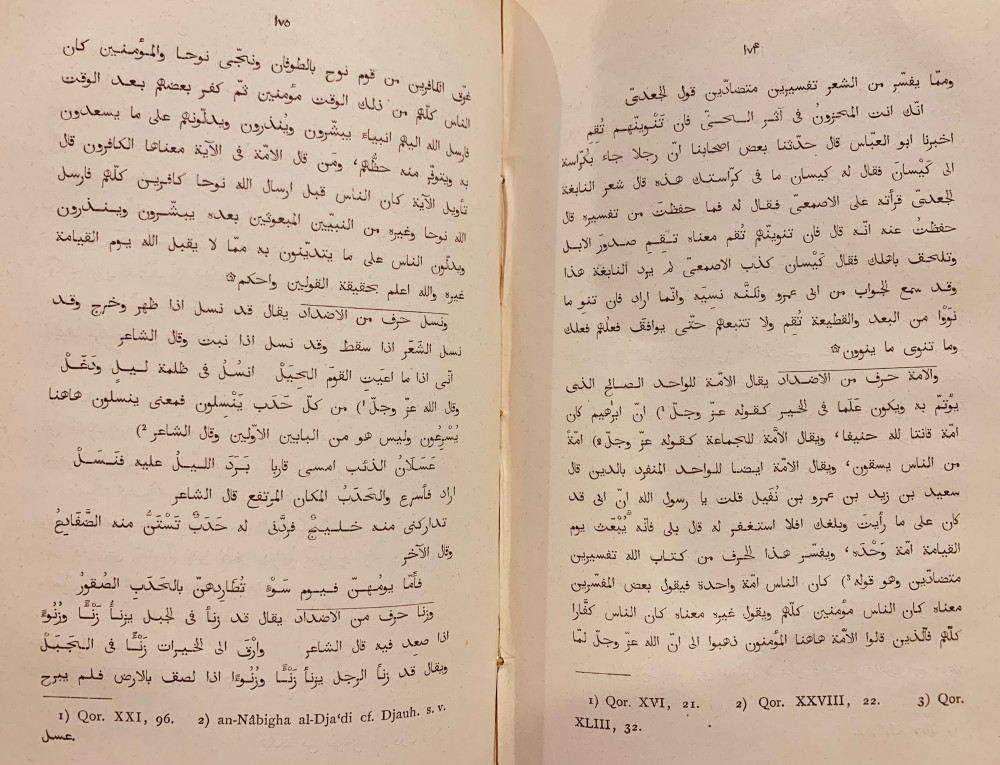 ١٧۴
وممّا يفسّر من الشعر تفسيرين متضادّين قول الجعدىّ
انّك انت المحزونُ فى أثَرِ الـحـىّ فان تَنْوِينّهم تُقِم
اخبرنا ابو العبّاس قال حدّثنا بعض اصحابنا انّ رجلا جاء بكرّاسة
الى كَيْسانَ فقال له كيسان ما فى كرّاستك هذه قال شعر النابغة
الجعدىّ قرأته على الاصمعىّ فقال له فما حفظتَ من تفسيره قال
حفظتُ عنه انّه قال فان تنوينّهم تُقم معناه تـقـم صـدورَ الابـل
وتلـحـق باهلك فقال كَيْسان كذب الاصمعىّ لم يرد النابغة هذا
وقـد سمع الجواب من ابى عمرو ولكنّه نسِيَه وانّما اراد فان تنوِ ما
نَوَوْا من البعد والقطيعة تُقم ولا تتبعهم حتّى يوافق فعلُهم فعلك
وما تنوى ما ينوون۞
والأمّة حرف من الاضداد يقال الامّة للواحد الصالح الذى
يؤتمّ به ويكون عَلَما فى الخير كقوله عزّ وجلّ ¹) انّ ابرٰهيم كان
امّة قانتا لله حنيفا، ويقال الامّة للجماعة كقوله عزّ وجلّ ²) امّةً
من الناس يسقون، ويقال الامّة ايضا للواحد المنفرد بالدين قال
سعيد بن زيد بن عمرو بن نُفَيل قلت يا رسول الله انّ ابى قد
كان على ما رأيتَ وبلغك افلا استغفر له قال بلى فانّه يُبْعَث يوم
القيامة امّة وَحْدَه، ويفسّر هذا الحرف من كتاب الله تفسيرين
متضادّين وهو قوله ³) كان الناس امّة واحدة فيقول بعض المفسّرين
معناه كان الناس مؤمنين كلّهم ويقول غيره معناه كان الناس كفّارا
كلّهم فالّذين قالوا الامّة هاهنا المؤمنون ذهبوا الى انّ الله عزّ وجلّ لمّا
1) Qor. XVI, 21. 2) Qor. XXVIII, 22. 3) Qor.
XLIII, 32.
١٧٥
غرّق الكافرين من قوم نوح بالطوفان ونجّى نوحا والمؤمنين كان
الناس كلّهم من ذلك الوقت مؤمنين ثمّ كفر بعضهم بعد الوقت
فارسل الله اليهم انبياء يبشّرون ويُنذرون ويدلّونهم على ما يسعدون
به ويتوفّر منه حظُّهم، ومَن قال الامّة فى الآية معناها الكافرون قال
تأويل الآية كان الناس قبل ارسال الله نوحا كافرين كلّهم فارسل
الله نوحا وغيره من النبيّين المبعوثين بعده يبشّرون وينذرون
ويدلّون الناس على ما يتديّنون به ممّا لا يقبل الله يوم القيامة
غيره والله اعلم بحقيقة القولين واحكم۞
ونسل حرف من الاضداد يقال قد نسل اذا ظهر وخرج وقد
نسل الشَعَر اذا سقط وقد نسل اذا نبت وقال الشاعر
انّى اذا ما اعيَتِ القومَ الحِيَلْ انسُلُ فى ظلمة ليـلٍ ودَغَـلْ
وقال الله عزّ وجلّ ¹) من كلّ حَدَب يَنْسِلون فمعنى ينسلون هاهنا
يُسْرِعُون وليس هو من البابين الاوّلين وقال الشاعر ²)
عَسَلَانَ الذئب امسى قاربا بَـرَدَ الليـلُ عليه فنَـسَـلْ
اراد فأسرع والحَدَبُ المكان المرتفع قال الشاعر
تداركنى منه خـلـيـج فردَّنى له حَدَبٌ تَسْتَنُّ منه الضَّفَادِعُ
وقال الآخر
فأمّا يومُهـنّ فـيـوم سَـوْءٍ تُطَارِدهنّ بالحَدَبِ الصُقورُ
وزنا حرف من الاضداد يقال قد زنأ فى الجبل يزنـأُ زَنْـأً وزُنُوءًا
اذا صعد فيه قال الشاعر وأرْقَ الى الخيرات زَنْـأً فى الـجَـبَـلْ
ويقال قد زنأ الرجل يزنأُ زَنْـأً وزُنُوءًا اذا لصف بالارض فـلـم يبرح
1) Qor. XXI, 96. 2) an-Nâbigha al-Dja‘di cf. Djauh. s. v.
عسل.